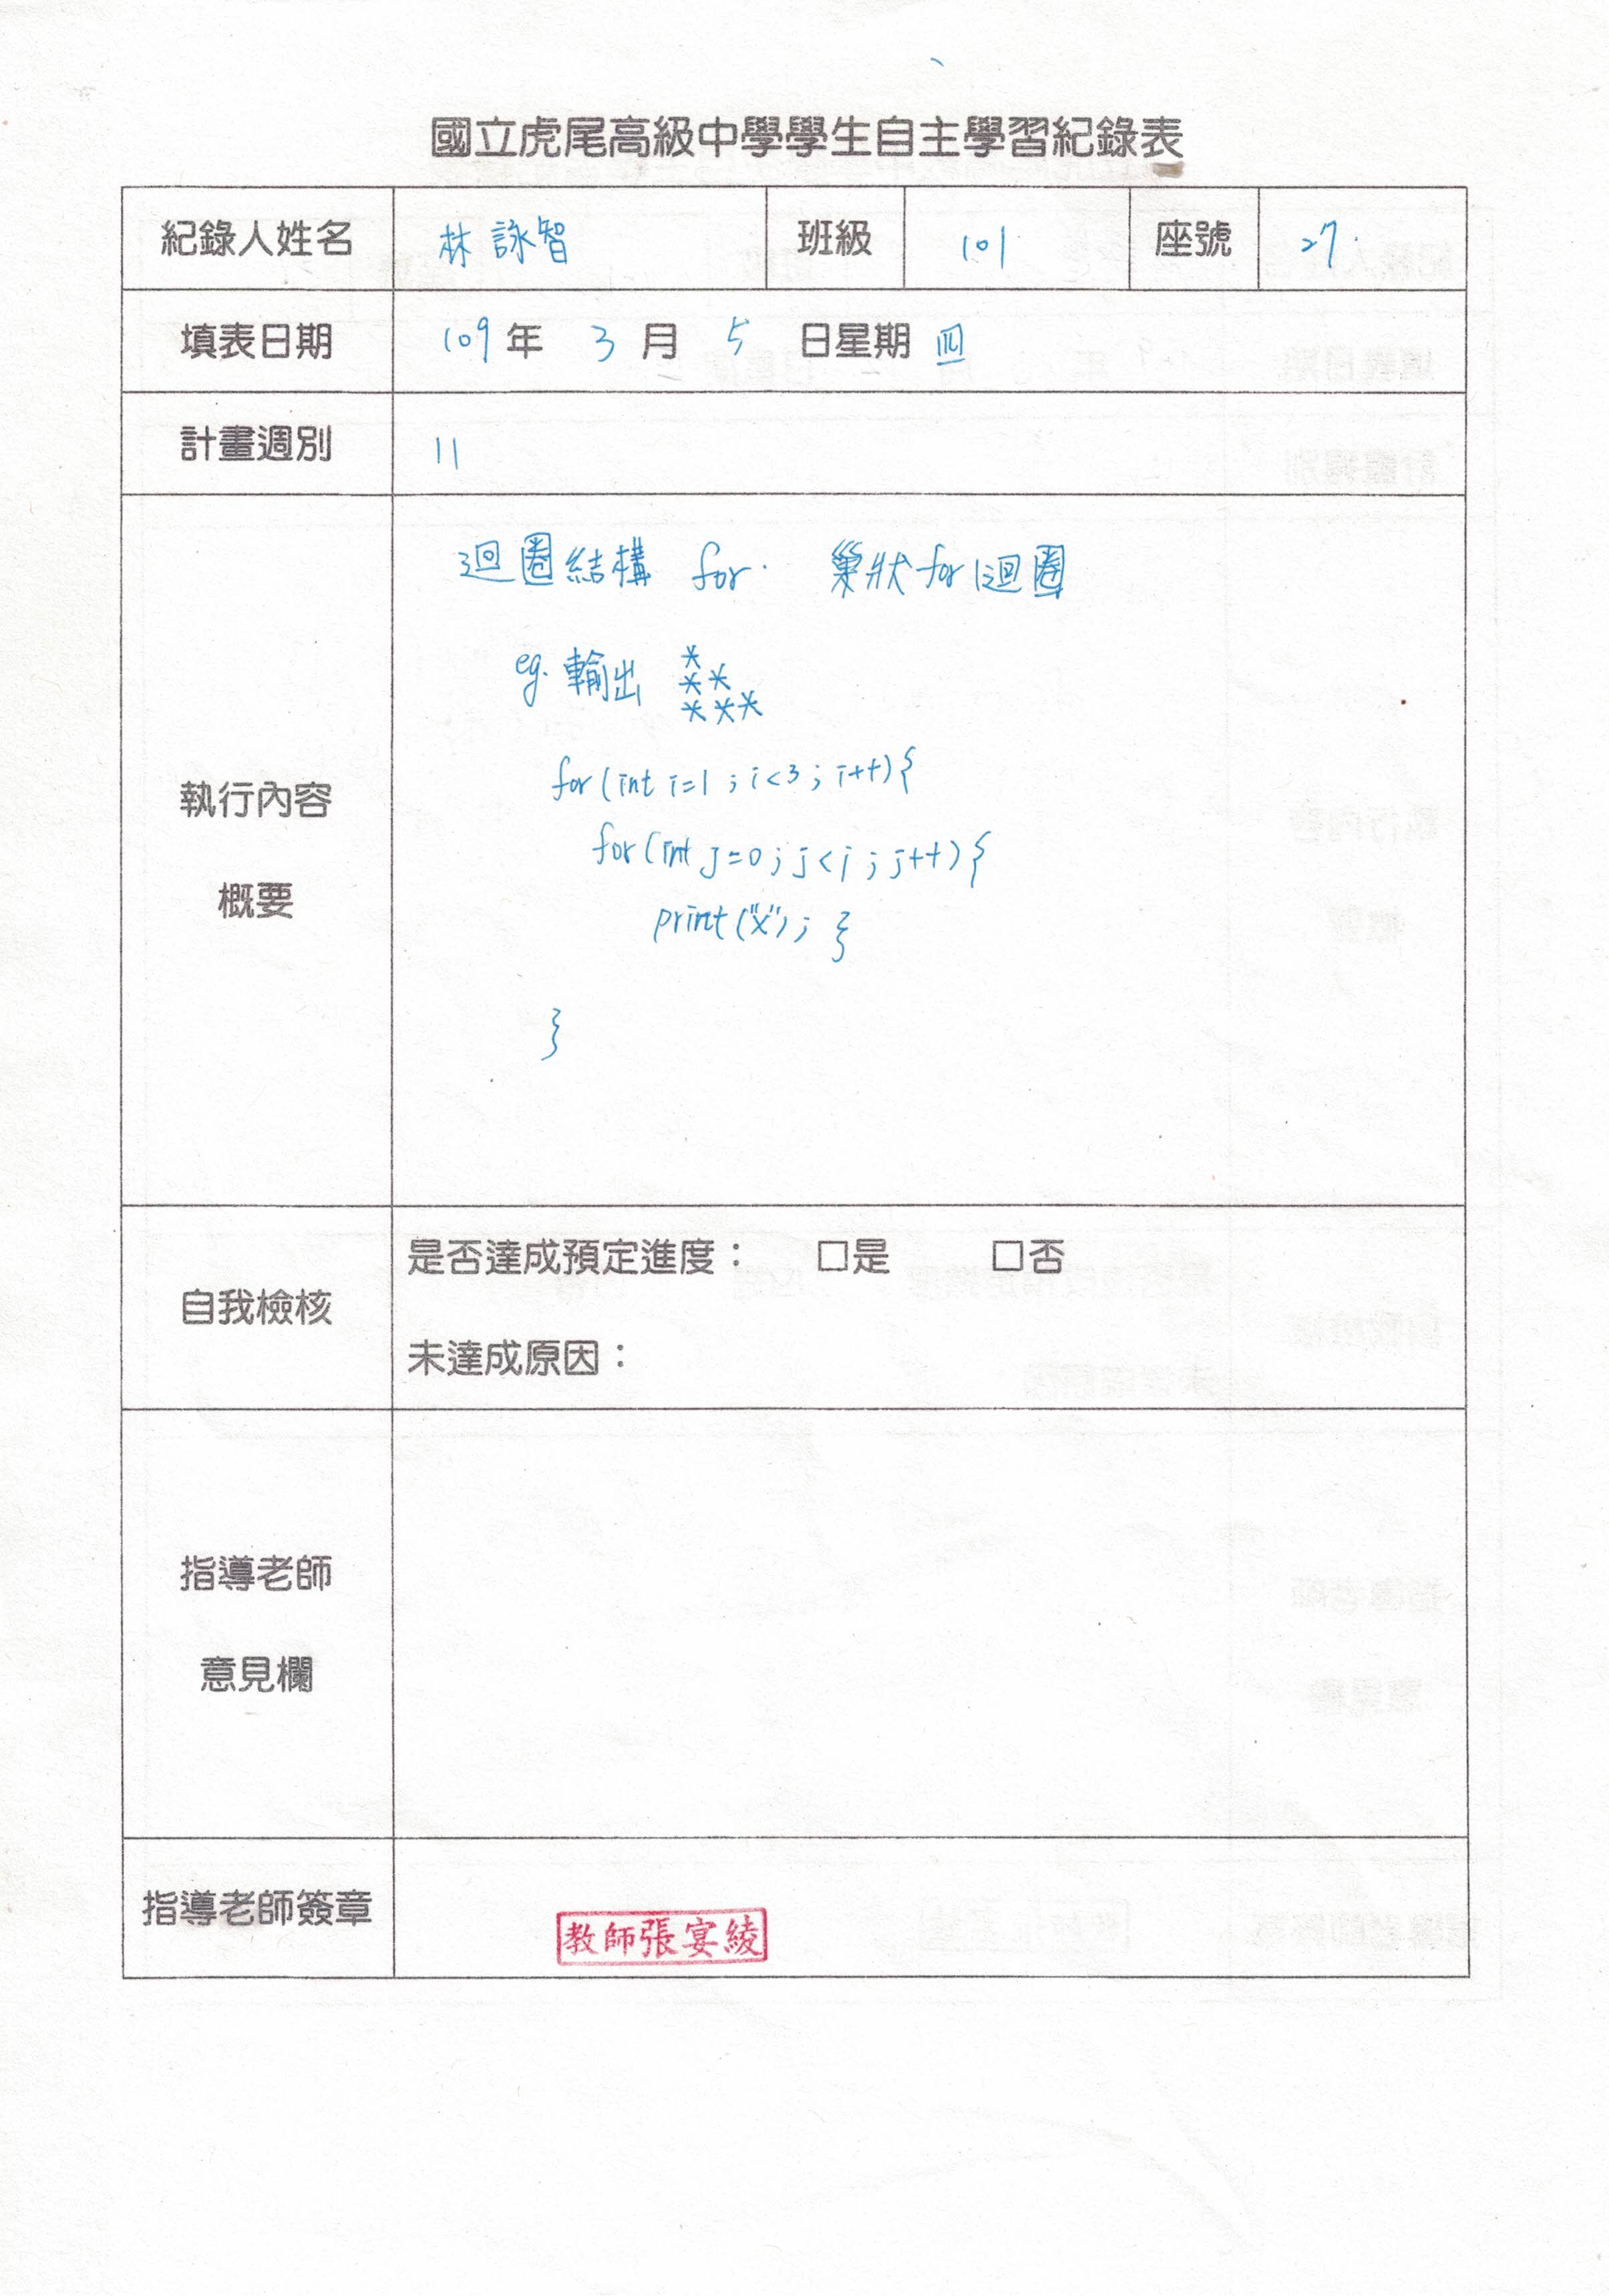 國立虎尾高級中學學生自主學習紀錄表
紀錄人姓名 林詠智 班級 101 座號 27
填表日期 109年 3月 5日星期四
計畫週別 11
迴圈結構 for. 巢狀for迴圈
eg. 輸出 *
**
***
for(int i=1;i<3;i++){
for(int j=0;j<i;j++){
print("*");}
}
執行內容
概要
是否達成預定進度： □是 □否
自我檢核
未達成原因：
指導老師
意見欄
指導老師簽章
教師張宴綾